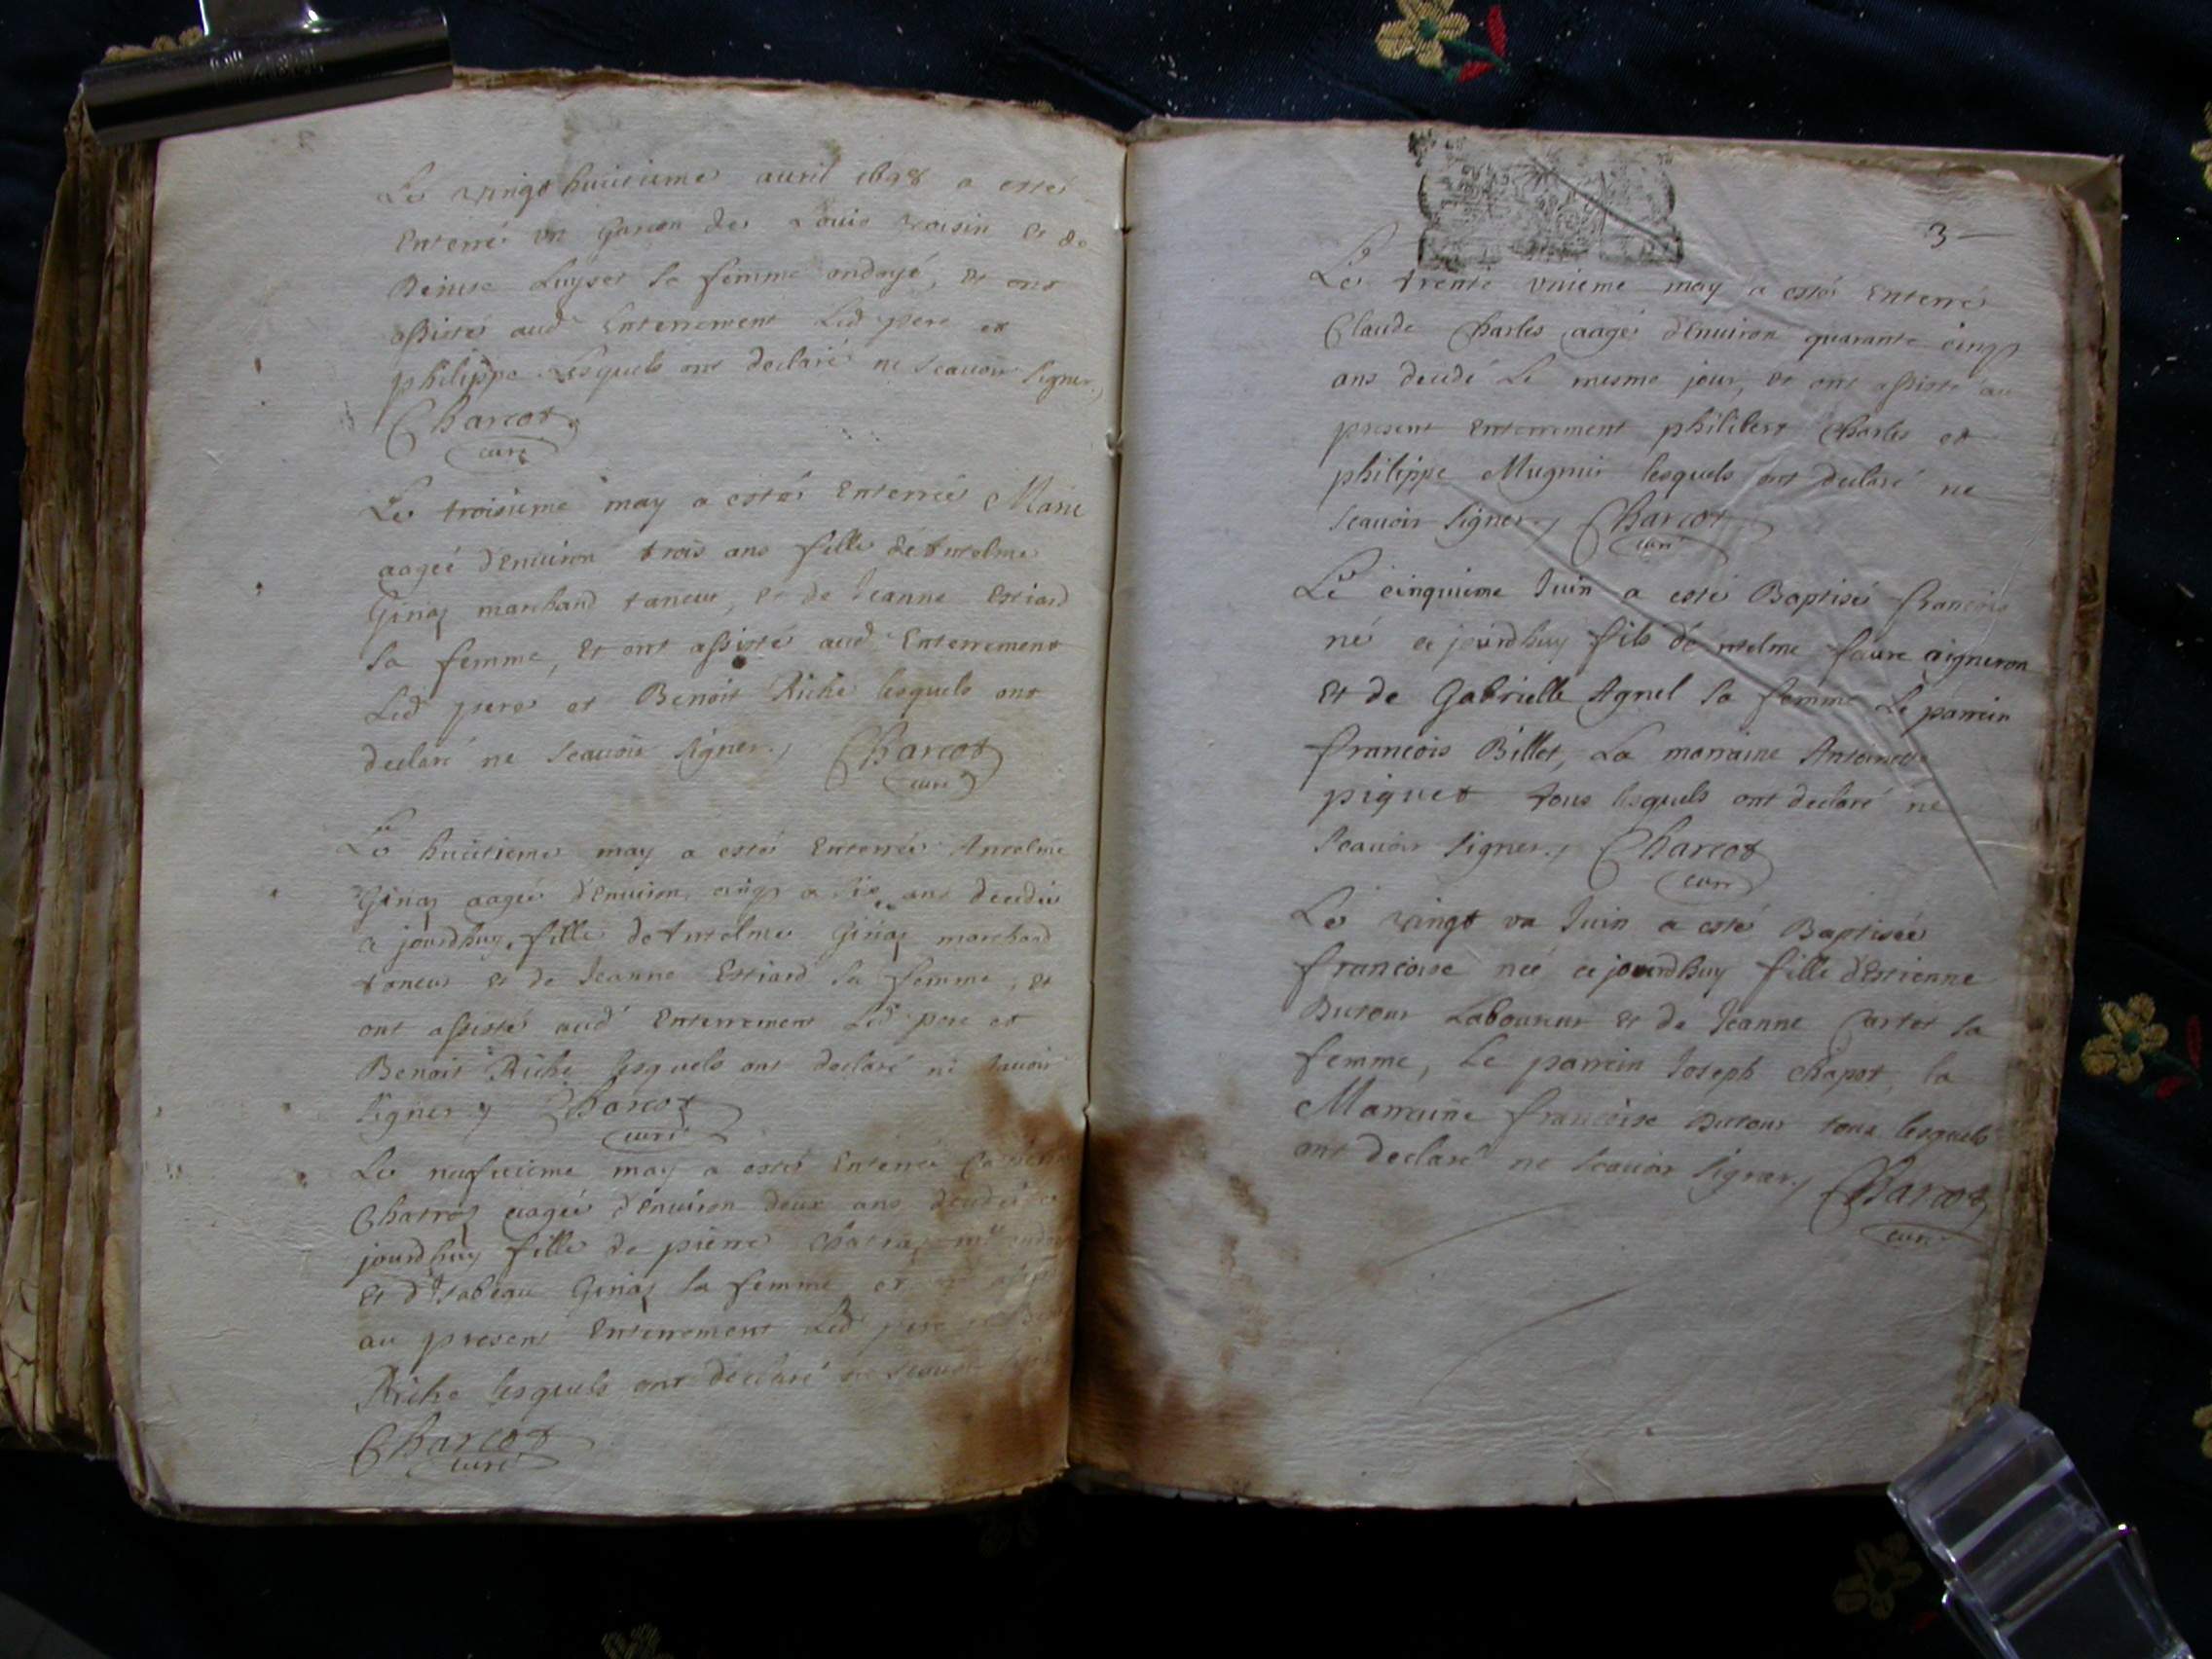 Le vingt huitieme auril 1698 a esté
Enterré vn garcon de Louis Voisin et de
Denise Luyset sa femme ondoyé, et ont
assisté aud Enterrement Led pere et
philippe Lesquels ont declaré ne scauoir signer.
Charcot
curé
Le troisieme may a estée Enterrée Marie
aagée d'Enuiron trois ans fille d'Antelme
Ginaz marchand taneur, et de Jeanne Estiard
sa femme, Et ont assisté aud Enterrement
Led pere et Benoit Riche lesquels ont
declaré ne scauoir signer. Charcot
curé
Le huitieme may a estée Enterrée Antelme
Ginaz aagée d'Enuiron cinq a six ans decedée
a jourdhuy fille d'Antelme Ginaz marchand
taneur et de Jeanne Estiard sa femme, et
ont assisté aud Enterrement Led pere et
Benoit Riche lesquels ont declaré ne scauoir
signer. Charcot
curé
Le neufuieme may a estée Enterrée
Chatraz aagée d'Enuiron deux ans decedée
jourdhuy fille de pierre Chatraz
Et d'Isabeau Ginaz sa femme et
au present Enterrement Led pere et
Riche lesquels ont declaré ne scauoir
Charcot
curé
3
Le trente vnieme may a esté Enterré
Claude Charles aagé d'Enuiron quarante cinq
ans decedé Le mesme jour, et ont assisté au
present Enterrement philibert Charles et
philippe Mugnier lesquels ont declaré ne
scauoir signer. Charcot
curé
Le cinquieme Juin a esté Baptisé francois
né ce jourdhuy fils d'Antelme faure vigneron
Et de Gabrielle Agnel sa femme Le parrein
francois Billet, La marraine Antoinette
piquet tous lesquels ont declaré ne
scauoir signer. Charcot
curé
Le vingt vn Juin a esté Baptisée
francoise née ce jourdhuy fille d'Estienne
Dutour Laboureur et de Jeanne Cartet sa
femme, Le parrein Joseph Chapot, la
Marraine francoise Dutour tous lesquels
ont declaré ne scauoir signer. Charcot
curé